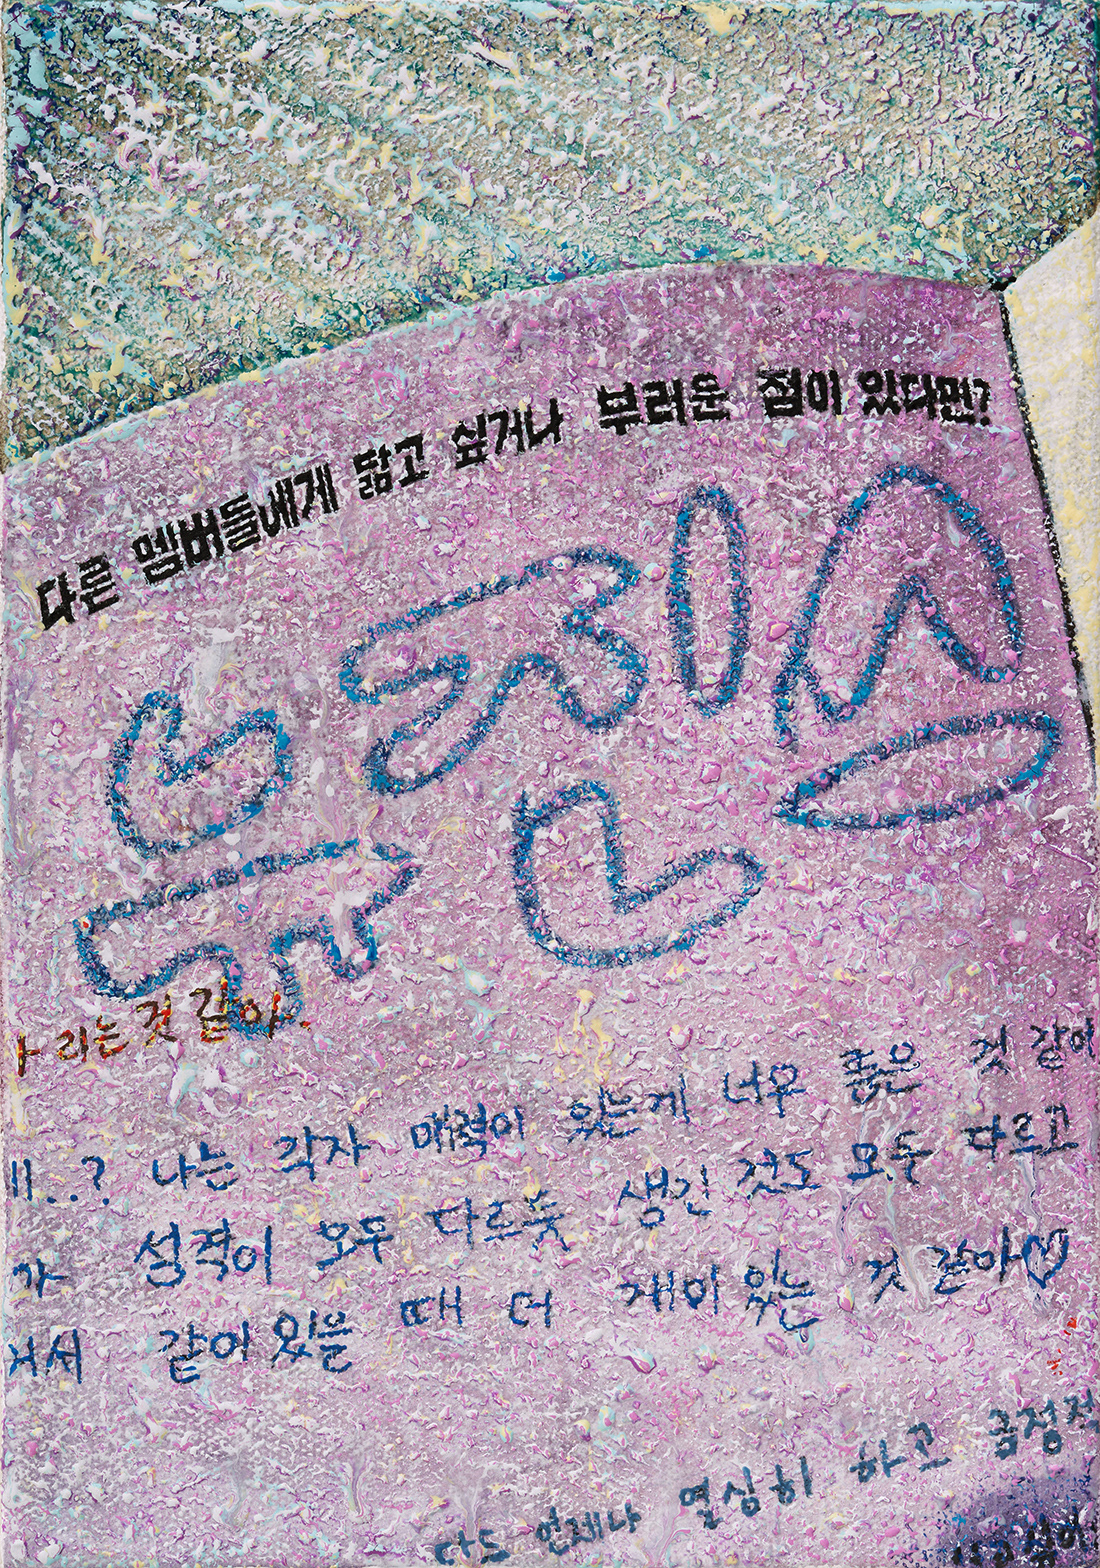 다른 멤버들에게 닮고 싶거나 부러운 점이 있다면?
뉴진스
리는것 같아.
...? 나는 각자 매력이 있는게 너무 좋은 것 같아
가 성격이 모두 다르듯 생긴 것도 모두 다르고
같이있을 때 더 재미있는 것 같아♡
나도 언제나 열심히 하고 긍정적